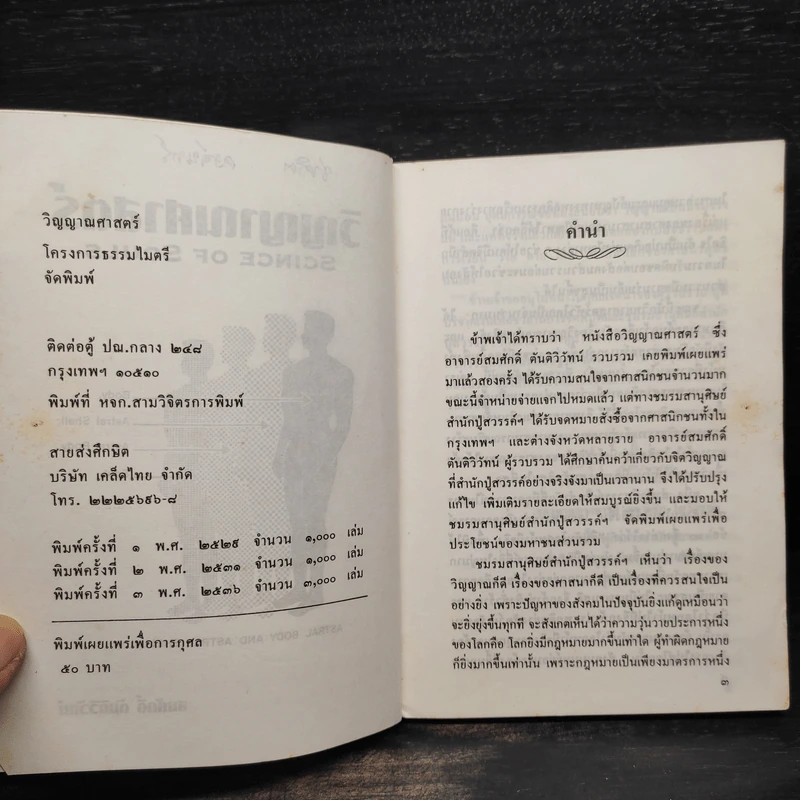 วิญญาณศาสตร์
โครงการธรรมไมตรี
จัดพิมพ์
ติดต่อตู้ ปณ.กลาง ๒๔๘
กรุงเทพฯ ๑๐๕๑๐
พิมพ์ที่ หจก.สามวิจิตรการพิมพ์
สายส่งศึกษิต
บริษัท เคล็ดไทย จำกัด
โทร. ๒๒๒๕๖๙๖-๘
พิมพ์ครั้งที่ ๑ พ.ศ. ๒๕๒๙ จำนวน ๑,๐๐๐ เล่ม
พิมพ์ครั้งที่ ๒ พ.ศ. ๒๕๓๑ จำนวน ๑,๐๐๐ เล่ม
พิมพ์ครั้งที่ ๓ พ.ศ. ๒๕๓๖ จำนวน ๓,๐๐๐ เล่ม
พิมพ์เผยแพร่เพื่อการกุศล
๕๐ บาท
คำนำ
ข้าพเจ้าได้ทราบว่า หนังสือวิญญาณศาสตร์ ซึ่ง
อาจารย์สมศักดิ์ ตันติวิวัทน์ รวบรวม เคยพิมพ์เผยแพร่
มาแล้วสองครั้ง ได้รับความสนใจจากศาสนิกชนจำนวนมาก
ขณะนี้จำหน่ายจ่ายแจกไปหมดแล้ว แต่ทางชมรมสานุศิษย์
สำนักปู่สวรรค์ฯ ได้รับจดหมายสั่งซื้อจากศาสนิกชนทั้งใน
กรุงเทพฯ และต่างจังหวัดหลายราย อาจารย์สมศักดิ์
ตันติวิวัทน์ ผู้รวบรวม ได้ศึกษาค้นคว้าเกี่ยวกับจิตวิญญาณ
ที่สำนักปู่สวรรค์ฯ อย่างจริงจังมาเป็นเวลานาน จึงได้ปรับปรุง
แก้ไข เพิ่มเติมรายละเอียดให้สมบูรณ์ยิ่งขึ้น และมอบให้
ชมรมสานุศิษย์สำนักปู่สวรรค์ฯ จัดพิมพ์เผยแพร่เพื่อ
ประโยชน์ของมหาชนส่วนรวม
ชมรมสานุศิษย์สำนักปู่สวรรค์ฯ เห็นว่า เรื่องของ
วิญญาณก็ดี เรื่องของศาสนาก็ดี เป็นเรื่องที่ควรสนใจเป็น
อย่างยิ่ง เพราะปัญหาของสังคมในปัจจุบันยิ่งแก้ดูเหมือนว่า
จะยิ่งยุ่งขึ้นทุกที จะสังเกตเห็นได้ว่าความวุ่นวายประการหนึ่ง
ของโลกคือ โลกยิ่งมีกฎหมายมากขึ้นเท่าใด ผู้ทำผิดกฎหมาย
ก็ยิ่งมากขึ้นเท่านั้น เพราะกฎหมายเป็นเพียงมาตรการหนึ่ง
๓